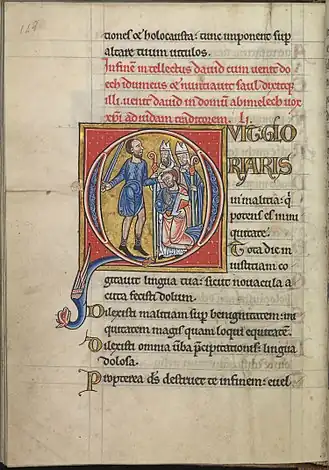 tiones et holocausta: tunc imponent sup
altare tuum vitulos.
In finem intellectus david cum venit do
ech idumeus et nuntiavit saul dixitq;
illi. venit david in domum abimelech vox
xpi ad iudam traditorem. LI.
QUID GLO
RIARIS
in malitia: q
potens es in ini
quitate.
Tota die in
iustitiam co
gitavit lingua tua: sicut novacula a
cuta fecisti dolum.
Dilexisti malitiam sup benignitatem: ini
quitatem magis quam loqui equitatē.
Dilexisti omnia v̄ba p̄cipitationis: lingua
dolosa.
Propterea d̄s destruet te in finem: evel